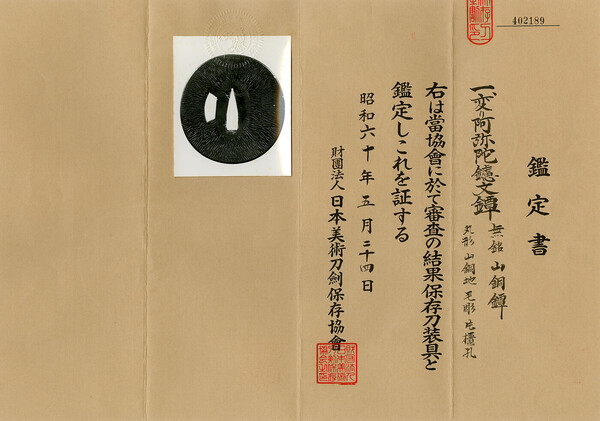 402189
鑑定書
一、変り阿弥陀鑢文鐔
無銘 山銅鐔
丸形 山銅地 毛彫 片櫃孔
右は當協會に於て審査の結果保存刀装具と
鑑定しこれを証する
昭和六十年五月二十四日
財團法人 日本美術刀劍保存協會